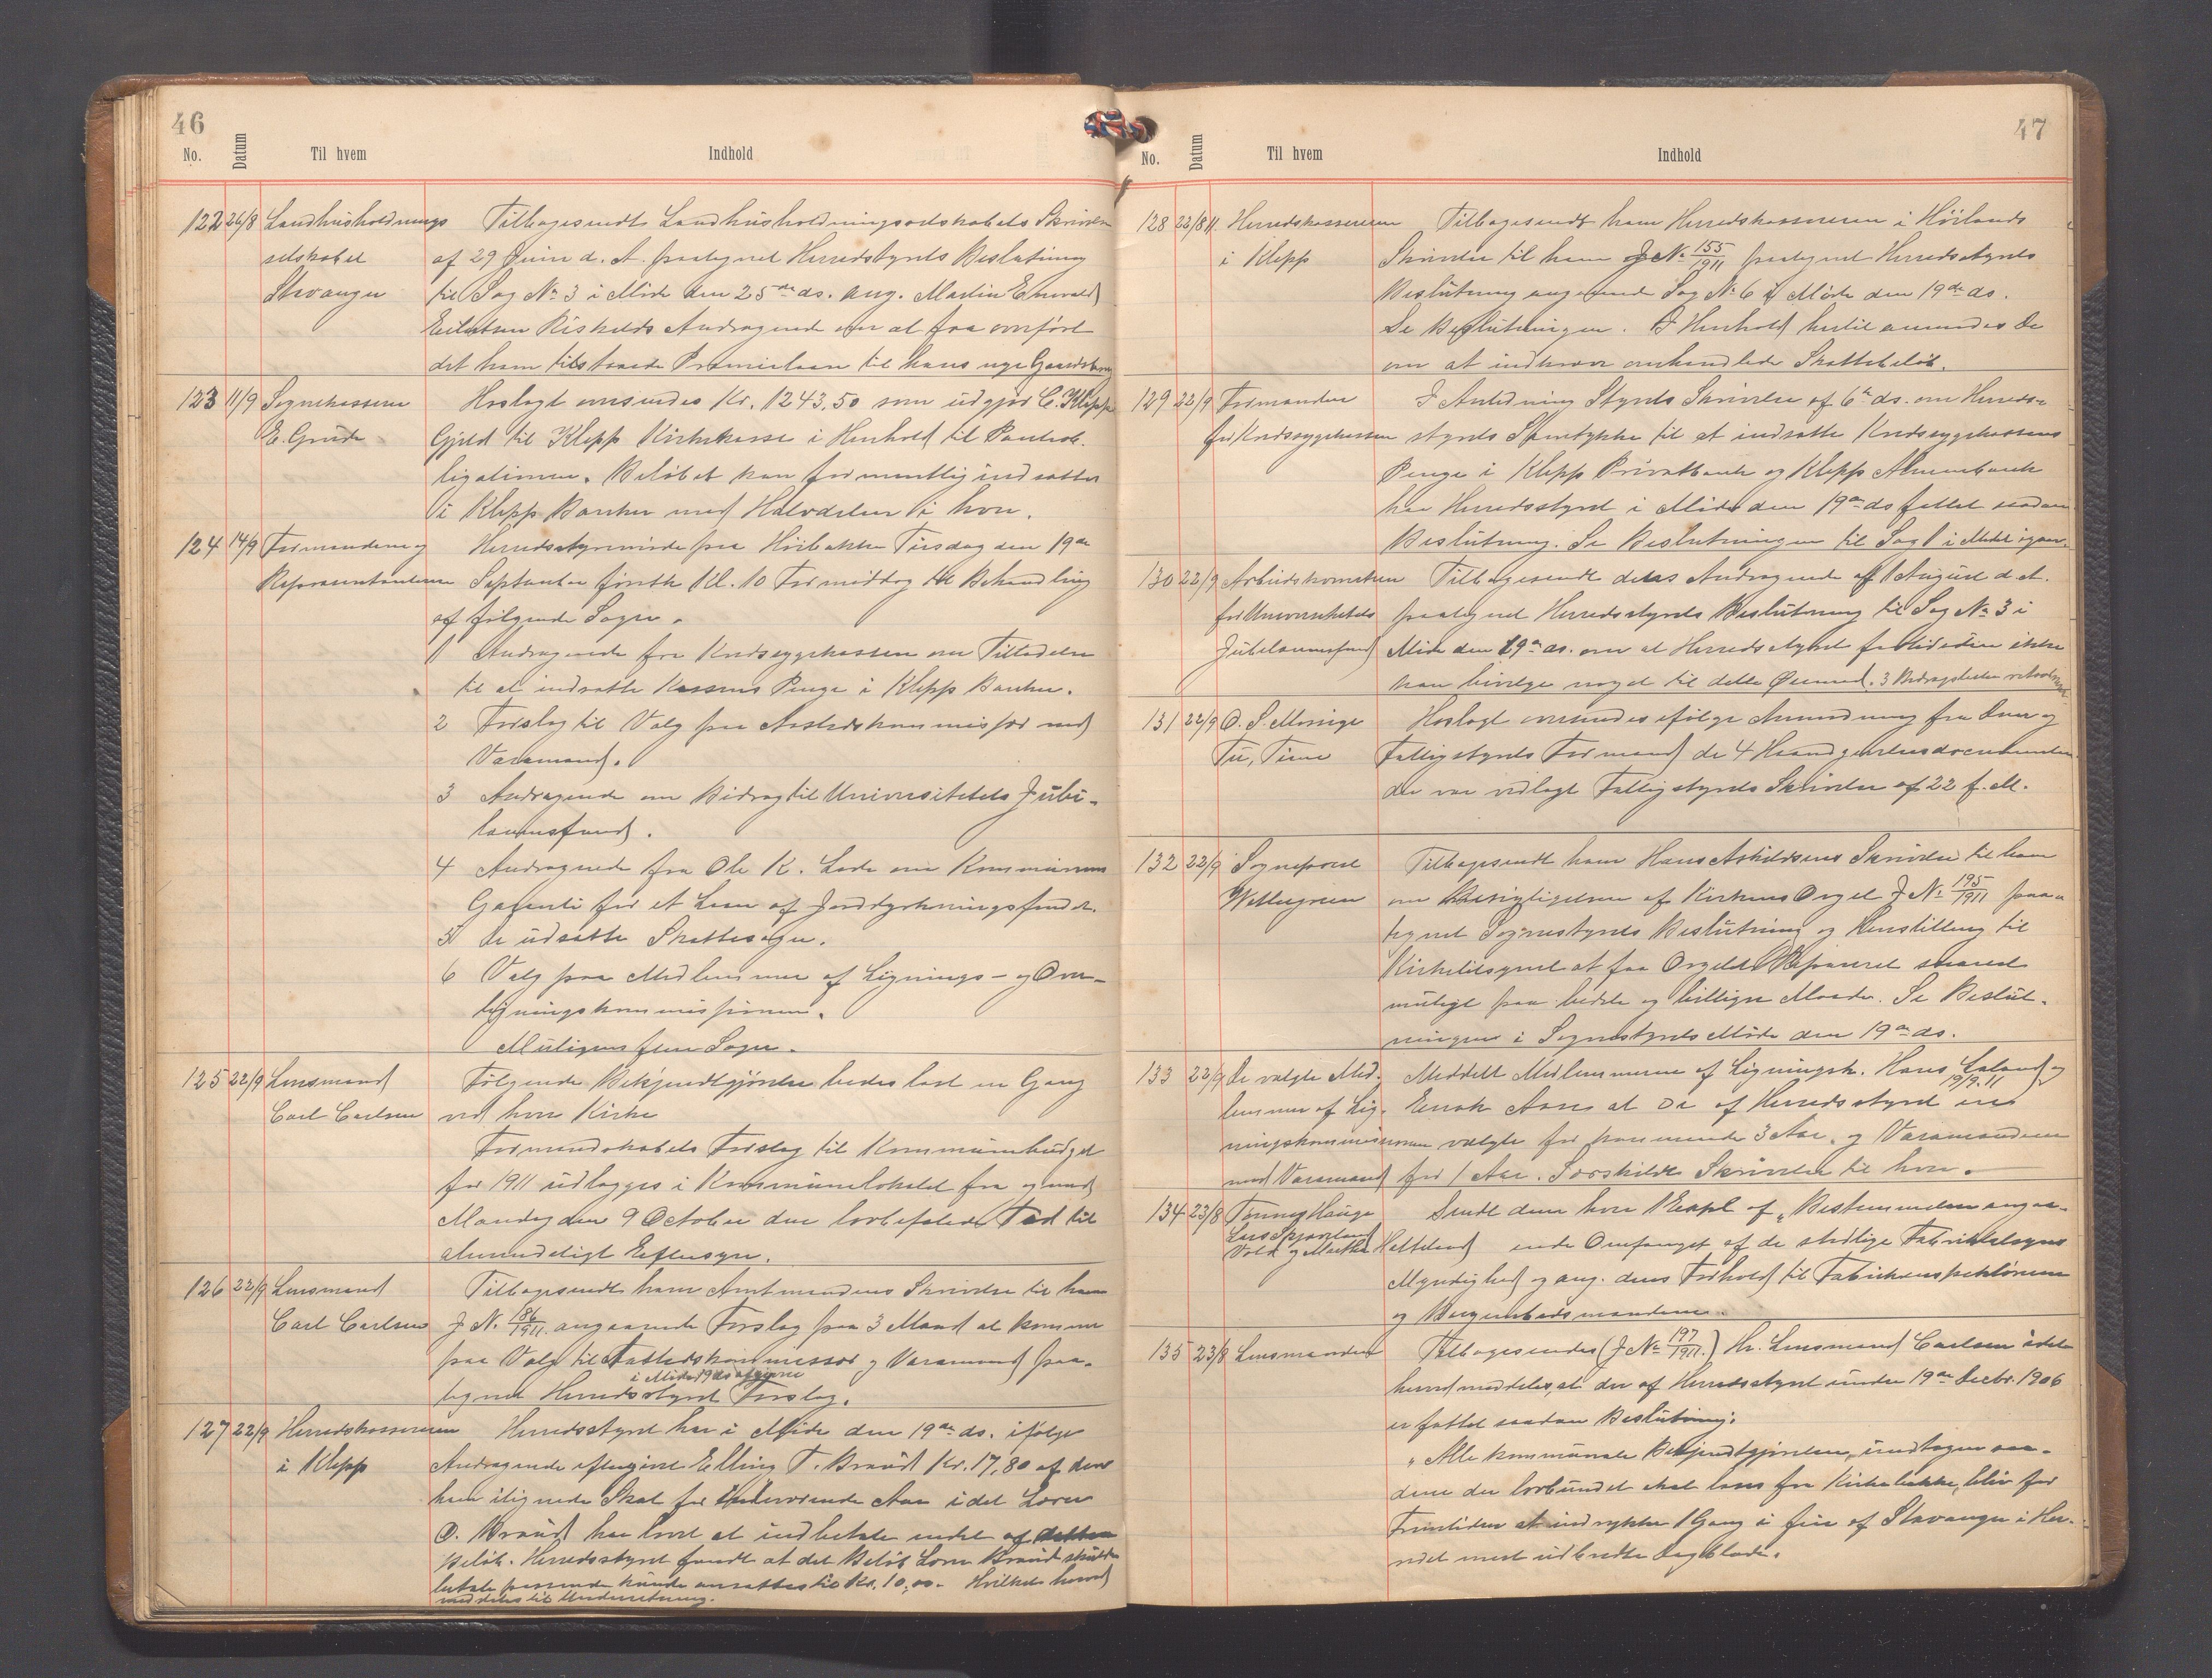 46
No. Datum Til hvem Indhold
122 26/8 Landhusholdnings Tilbagesendt Landhusholdningsselskabets Skrivelse
selskabet af 29 Juni d. A. paategnet Herredstyrets Beslutning
Stavanger til Sag No 3 i Møde den 25de ds. ang. Martin Enevald
Eilertsen Andragende om at faa overført
det ham tilstaaede Præmielaan til hans nye Gaardsbrug
123 11/9 Sognekasserer Hoslagt oversendes Kr. 1243,50 som udgjør C. Klepp
E. Grude Gjæld til Klepp Kirkekasse i Henhold til Panteob-
ligationen. Beløbet kan formentlig indsættes
i Klepp Banker med Halvdelen i hver.
124 14/9 Formændene og Herredsstyremøde paa Høibakke Tirsdag den 19de
Repræsentanterne September førstk. Kl. 10 Formiddag til Behandling
af følgende Sager.
1 Andragende fra Kredssygekassen om Tilladelse
til at indsætte Kassens Penge i Klepp Banker.
2 Forslag til Valg paa Aastedskommissær med
Varamand.
3 Andragende om Bidrag til Universitetets Jubi-
læumsfund.
4 Andragende fra Ole K. Lode om Kommunens
Garanti for et Laan af Jorddyrkningsfondet.
5 De udsatte Skattesager.
6 Valg paa Medlemmer af Lignings- og Over-
ligningskommissionen.
Muligens flere Sager.
125 22/9 Lensmand Følgende Bekjendtgjørelse bedes læst en Gang
Carl Carlsen ved hver Kirke
Formandskabets Forslag til Kommunebudget
for 1911 udlægges i Kommunelokalet fra og med
Mandag den 9 October den lovbefalede Tid til
almindeligt Eftersyn.
126 22/9 Lensmand Tilbagesendt ham Amtmandens Skrivelse til ham
Carl Carlsen J. N. 86/1911 angaaende Forslag paa 3 Mænd at komme
paa Valg til Aastedskommissær og Varamand paa-
i Møde 19 ds afgivne
tegnet Herredsstyret Forslag.
127 22/9 Herredskassereren Herredsstyret har i Møde den 19de ds. ifølge
i Klepp Andragende eftergivet Elling T. Braud Kr. 17,80 af den
ham ilignede Skat for Aar idet Loren
O. Braud har lovet at indbetale
Beløb. Herredsstyret fandt at det Beløb Loren Braud skulde
betale passende kunde ansættes til Kr. 10,00. Hvilket herved
meddeles til Underretning.
47
No. Datum Til hvem Indhold
128 22/8 11. Herredskassereren Tilbagesendt ham Herredskassereren i Høilands
i Klepp Skrivelse til ham J No 155/1911 paategnet Herredsstyrets
Beslutning angaaende Sag No 6 i Møde den 19de ds.
Se Beslutningen. I Henhold hertil anmodes De
om at indkræve omhandlede Skattebeløb.
129 22/9 Formanden I Anledning Styrets Skrivelse af 6te ds. om Herreds-
for Kredssygekassen styrets Samtykke til at indsætte Kredssygekassens
Penge i Klepp Privatbank og Klepp Almuebank
har Herredsstyret i Møde den 19de ds fattet saadan
Beslutning. Se Beslutningen til Sag 1 i Mødet igaar.
130 22/9 Arbeidskomiteen Tilbagesendt deres Andragende af 1 August d. A.
for Universitetets paategnet Herredsstyrets Beslutning til Sag No 3 i
Jubelæumsfund Møde den 19de ds. om at Herredsstyret fortiden ikke
kan bevilge noget til dette Øiemed. 3 Bidragslister
131 22/9 O. S. Mossige Hoslagt oversendes ifølge Anmodning fra Dem og
Tu, Time Fattigstyrets Formand de 4
der var vedlagt Fattigstyrets Skrivelse af 22 f. M.
132 22/9 Sogneprest Tilbagesendt ham Hans Askildsens Skrivelse til ham
Wettergreen om Besigtigelsen af Kirkens Orgel J No 195/1911 paa-
tegnet Sognestyrets Beslutning og Henstilling til
Kirketilsynet at faa Orgelet Reparerert snarest
muligt paa bedste og billigste Maade. Se Beslut-
ningen i Sognestyrets Møde den 19de ds.
133 22/9 De valgte Med- Meddelt Medlemmerne af Ligningsk. Hans Laland og
19/9.11
lemmer af Lig- Enok Aase at De af Herredsstyret er
ningskommissionen valgte for kommende 3 Aar. og Varamændene
med Varamænd for 1 Aar. Særskilte Skrivelse til hver.
134 23/8 Tønnes Hauge Sendt dem hver 1 Expl. af „Bestemmelser angaa-
Lars Skjæveland
Vold og Marthe Hetteland ende Omfanget af de stedlige Fabriktilsyns
Myndighed og ang. dens Forhold til Fabrikinspektionen
og Borgerombudsmændene.
135 23/8 Lensmanden Tilbagesendes (J No 197/1911.) Hr. Lensmand Carlsen idet
herved meddeles, at der af Herredsstyret under 19de Decbr. 1906
er fattet saadan Beslutning:
„Alle kommunale Bekjendtgjørelser, undtagen saa-
dene der lovbundet skal læses fra Kirkebakke, bliv for
Fremtiden at indrykke 1 Gang i fire af Stavanger i Her-
redet mest udbredte Dagblade.